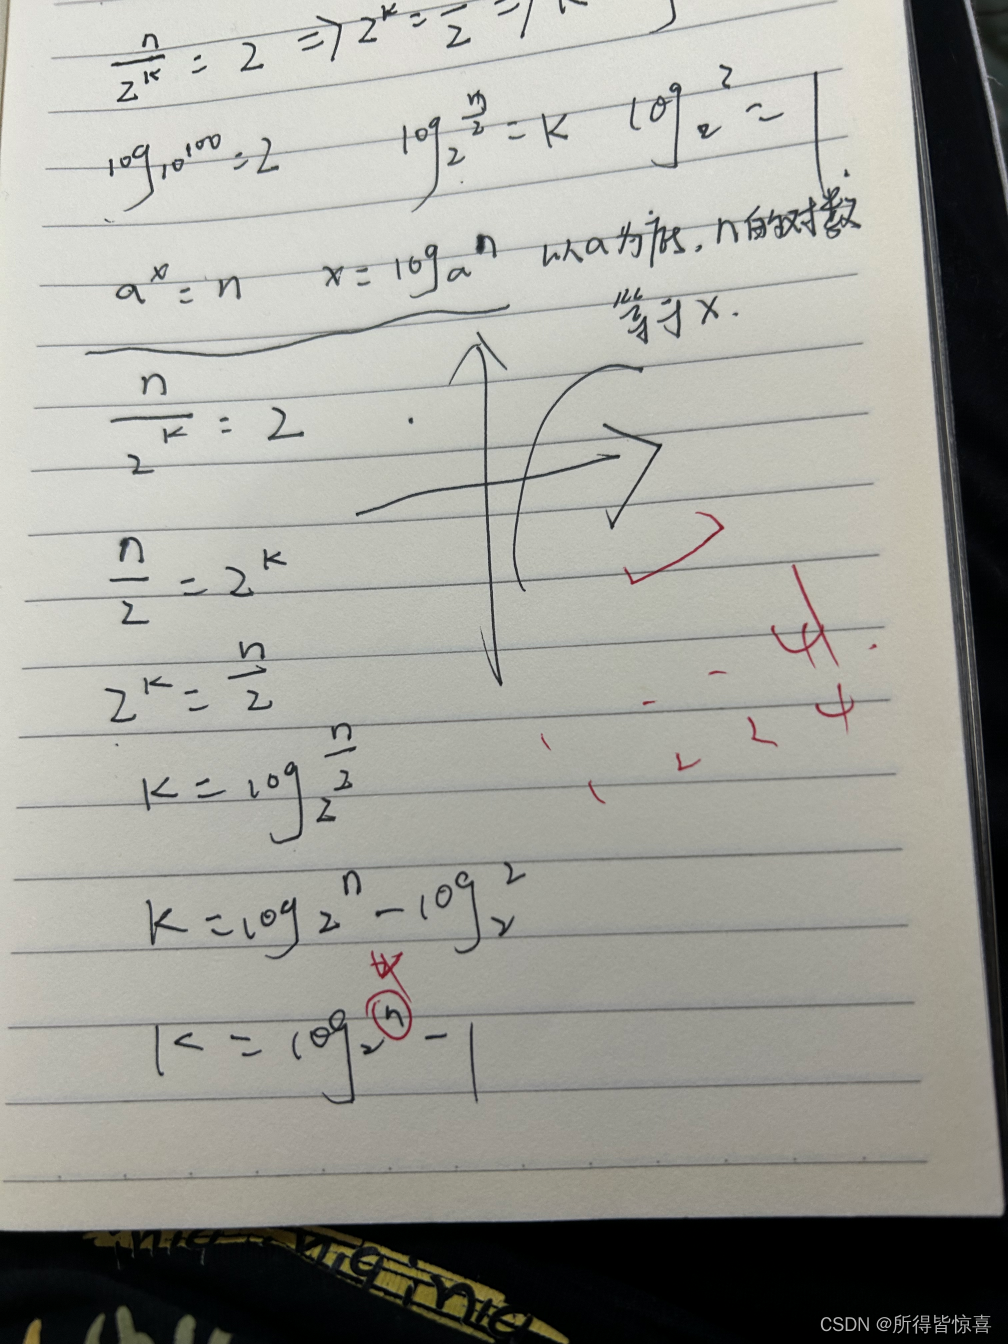 n/2^k = 2 => 2^k = n/2 => k
log₁₀100 = 2 log₂ n/2 = k log₂2 = 1
a^x = n x = logₐn 以a为底,n的对数
等于x.
n/2^k = 2
n/2 = 2^k
2^k = n/2
k = log₂ n/2
k = log₂n - log₂2
k = log₂n - 1
CSDN @所得皆惊喜